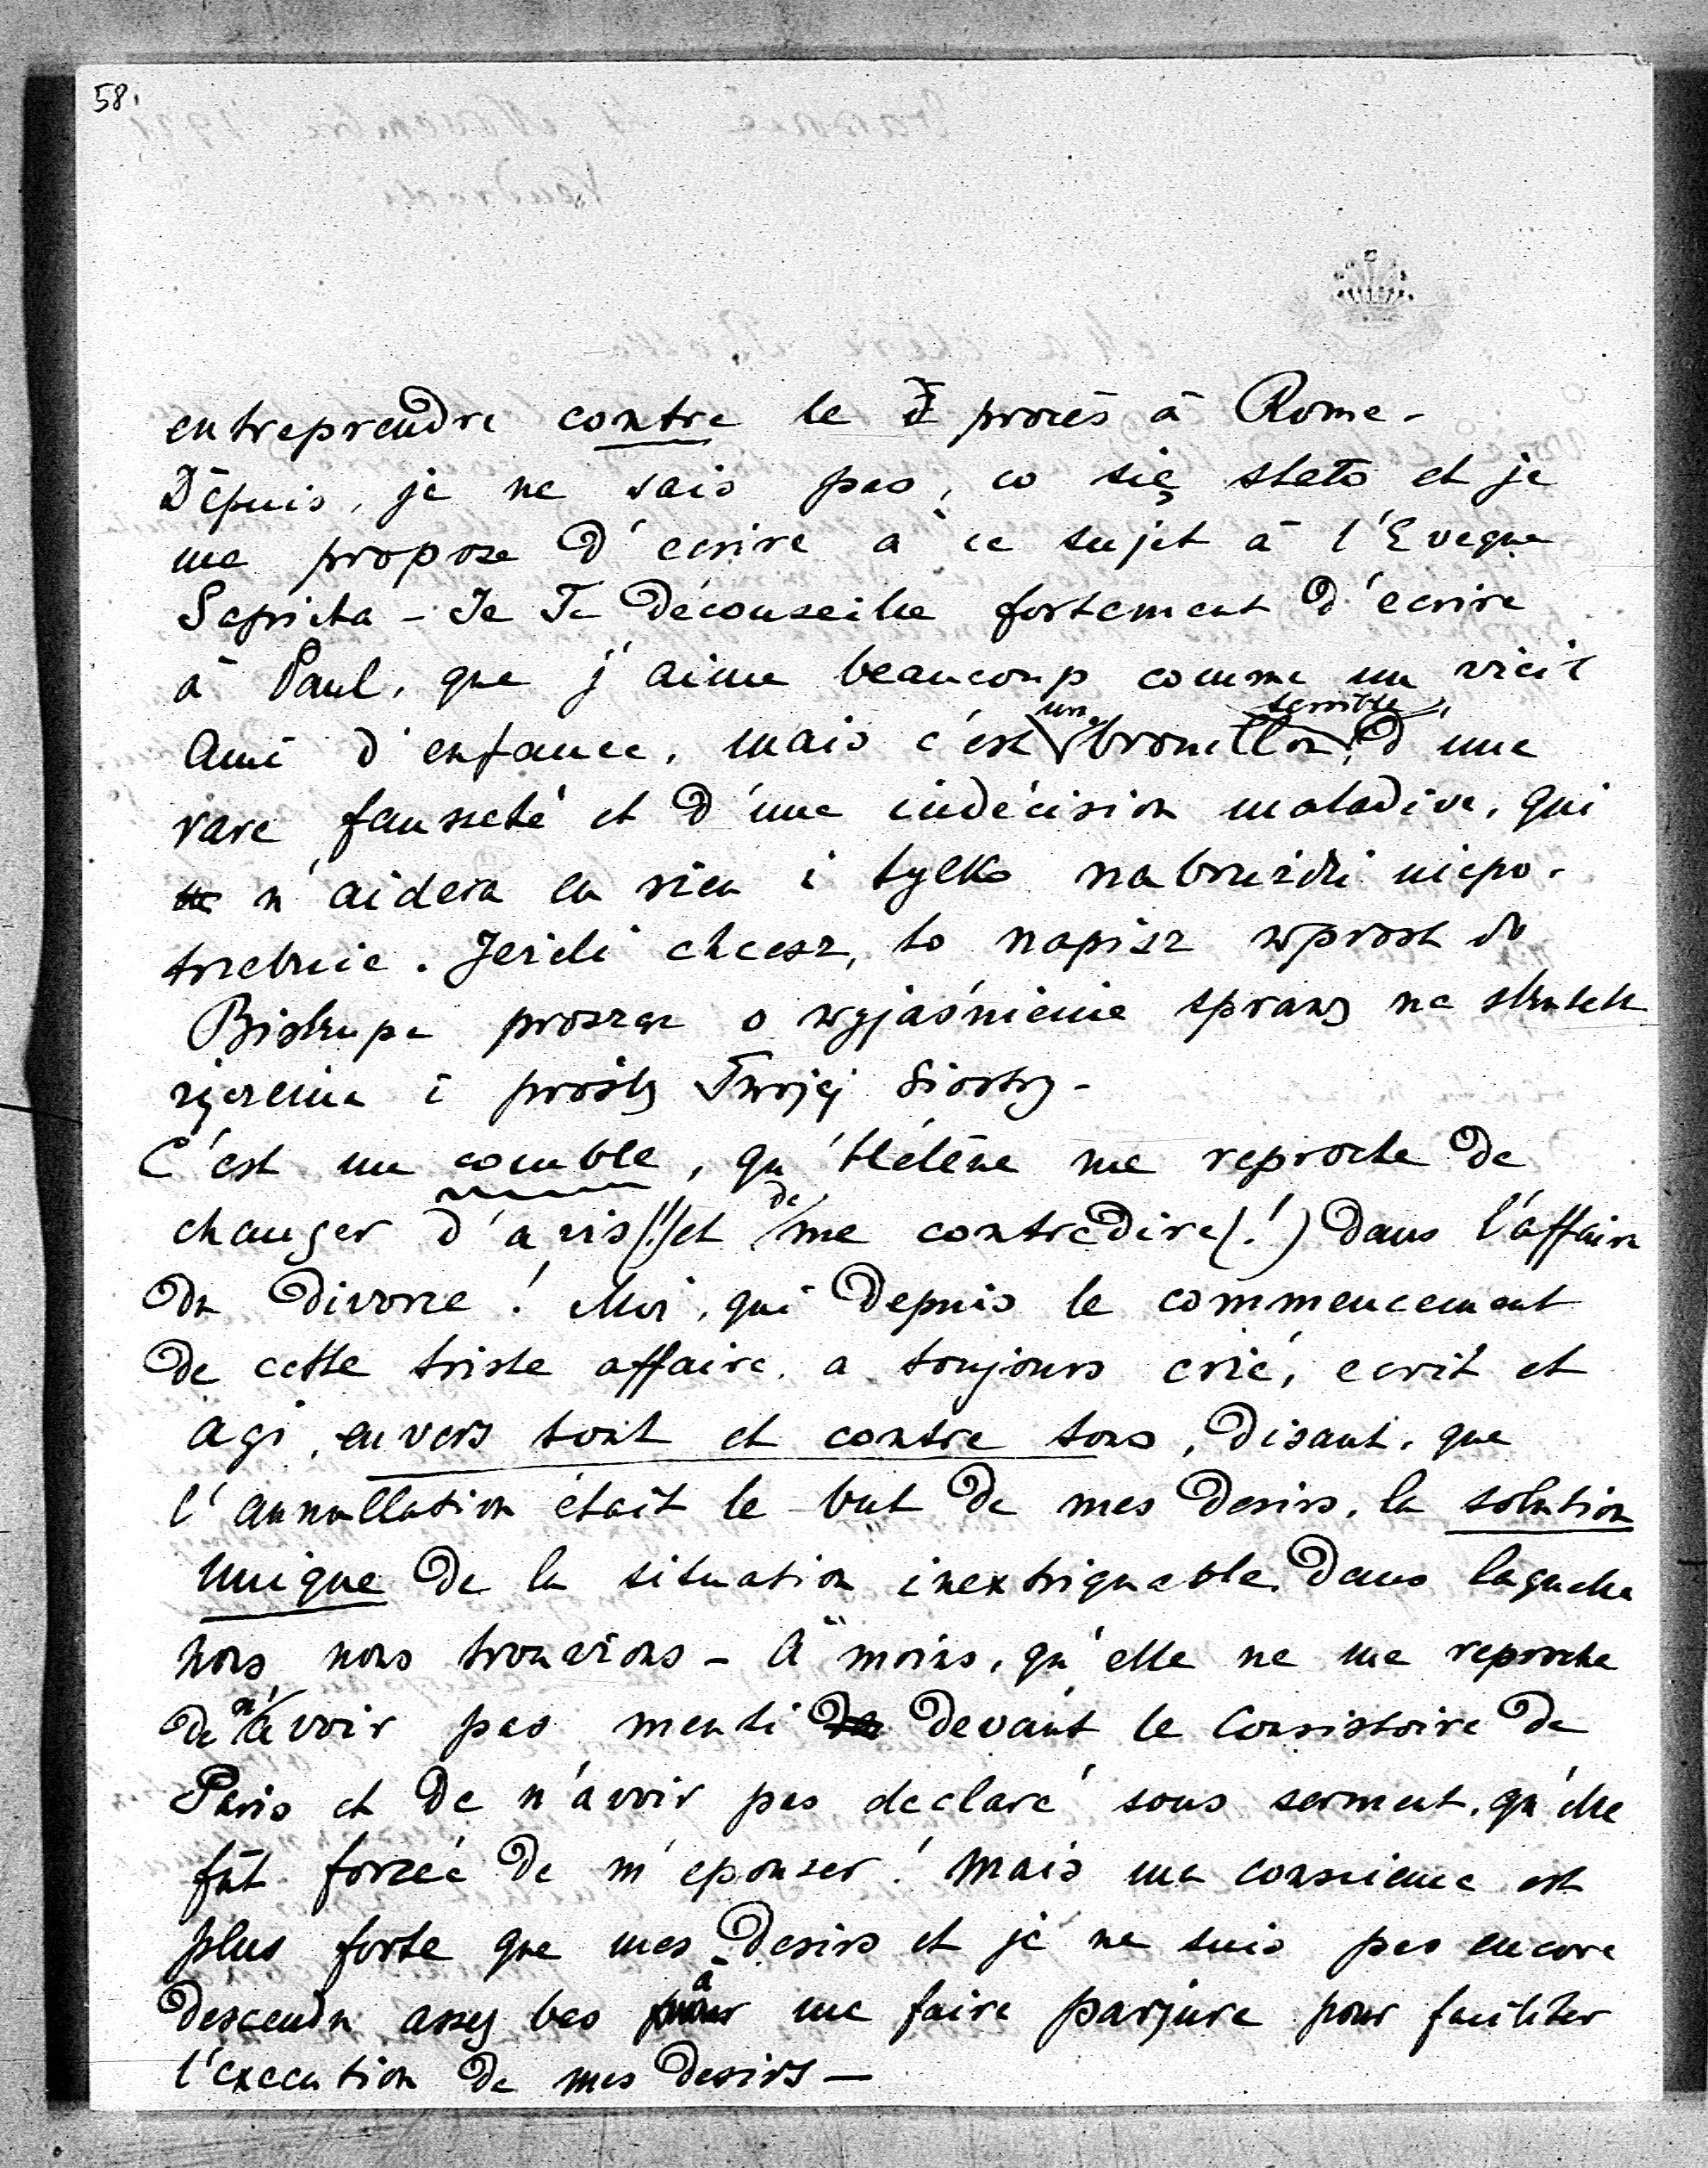 58.
entreprendre contre le procès à Rome.
Dépuis, je ne sais pas, co się stało et je
me propose d'écrire à ce sujet à l'Eveque
Sapieha - Je Te déconseille fortement d'écrire
à Paul, que j'aime beaucoup comme un vieil
ami d'enfance, mais c'est un brouillon terrible, d'une
rare fausseté et d'une indécision maladive, qui
n'aidera en rien i tylko nabruździ niepo-
trzebnie. Jeżeli chcesz, to napisz wprost do
Biskupa prosząc o wyjaśnienie sprawy na skutek
życzenia i prośby Twojej Siostry -
C'est un comble, qu'Hélène me reproche de
changer d'avis (!) et de me contredire (!) dans l'affaire
du divorce ! Moi, qui depuis le commencement
de cette triste affaire, a toujours crié, ecrit et
agi, envers tout et contre tous, disant, que
l'annullation était le but de mes desirs, la solution
unique de la situation inextriquable dans laquelle
nous nous trouvions - À moins, qu'elle ne me reproche
de n'avoir pas menti devant le Consistoire de
Paris et de n'avoir pas declaré sous serment, qu'elle
fût forcée de m'epouser ! Mais ma conscience est
plus forte que mes desirs et je ne suis pas encore
descendu assez bas à me faire parjure pour faciliter
l'execution de mes desirs —